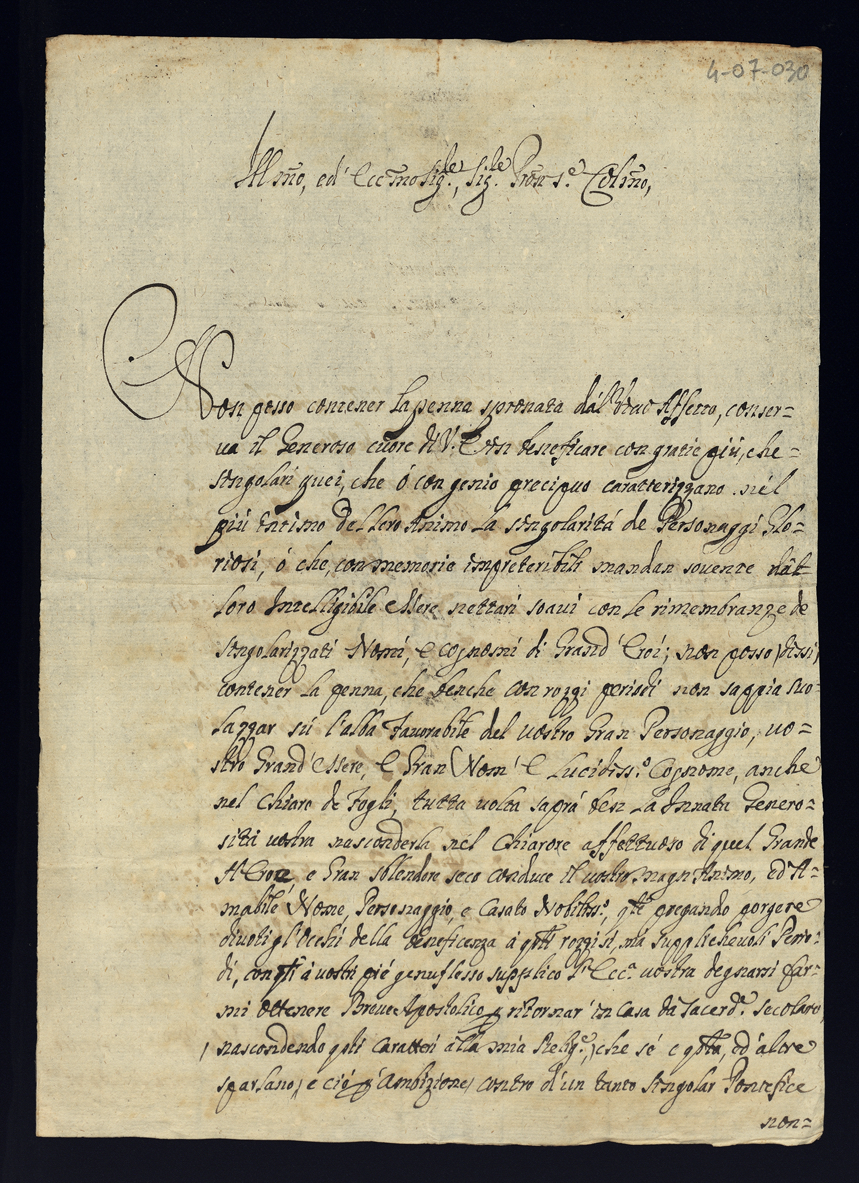 4-07-030
Ill.mo, ed' Ecc.mo Sig.re, Sig.re Pron s.e Col.mo,
Non posso contener la penna spronata dàl' vivo Affetto, conser-
va il Generoso cuore di V: E in beneficare con gratie più, che-
singolari quei, che ò con genio precipuo caratterizzano nél
più intimo del loro Animo la singolarità de Personaggi Glo-
riosi, ò che, con memorie impreteribili mandan sovente dàl
loro Intelligibile essere nettari soavi con le rimembranze de
singolarizzati Nomi, e cognomi di Grand' Eroi; non posso, dissi,
contener la penna, che benche con rozzi periodi non sappia svo-
lazzar sù l'alba favorabile del vostro Gran Personaggio, vo-
stro Grand' essere, e Gran Nom' e Lucidiss.o Cognome, anche
nel chiaro de fogli, tutta volta saprà ben la Innata Genero-
sità vostra nasconderla nél chiarore affettuoso di quel Grande
che e Gran splendore seco conduce il vostro magn'Animo, ed A-
mabile Nome, Personaggio, e Casato Nobiliss.o, pregando porgere
divoti gl'Occhi della beneficenza à rozzi sì, mà supplichevoli Perio-
di, con à vostri pié genuflesso supplico l' Ecc.a vostra degnarsi far-
mi ottenere Breve Apostolico ritornar' in Casa da Sacerd.e secolare,
nascondendo caratteri alla mia Relig.e, che sé e, ed' altre
sparlano, e ciò Ambizione, contro d'un tanto singolar Pontefice
non-